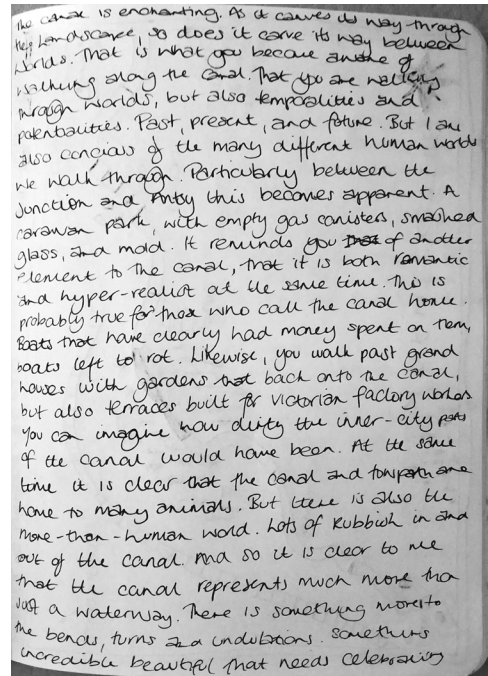 The canal is enchanting. As it carves its way through
the landscape, so does it carve its way between
worlds. That is what you become aware of
walking along the canal. That you are walking
through worlds, but also temporalities and
potentialities. Past, present, and future. But I am
also concious of the many different human worlds
we walk through. Particularly between the
Junction and this becomes apparent. A
caravan park, with empty gas canisters, smashed
glass, and mold. It reminds you of another
element to the canal, that it is both romantic
and hyper-realist at the same time. This is
probably true for those who call the canal home.
Boats that have clearly had money spent on them,
boats left to rot. Likewise, you walk past grand
houses with gardens that back onto the canal,
but also terraces built for Victorian factory workers
You can imagine how dirty the inner-city parts
of the canal would have been. At the same
time it is clear that the canal and towpath are
home to many animals. But there is also the
more-than-human world. Lots of rubbish in and
out of the canal. And so it is clear to me
that the canal represents much more than
just a waterway. There is something more to
the bends, turns and undulations. Something
incredible beautiful that needs celebrating